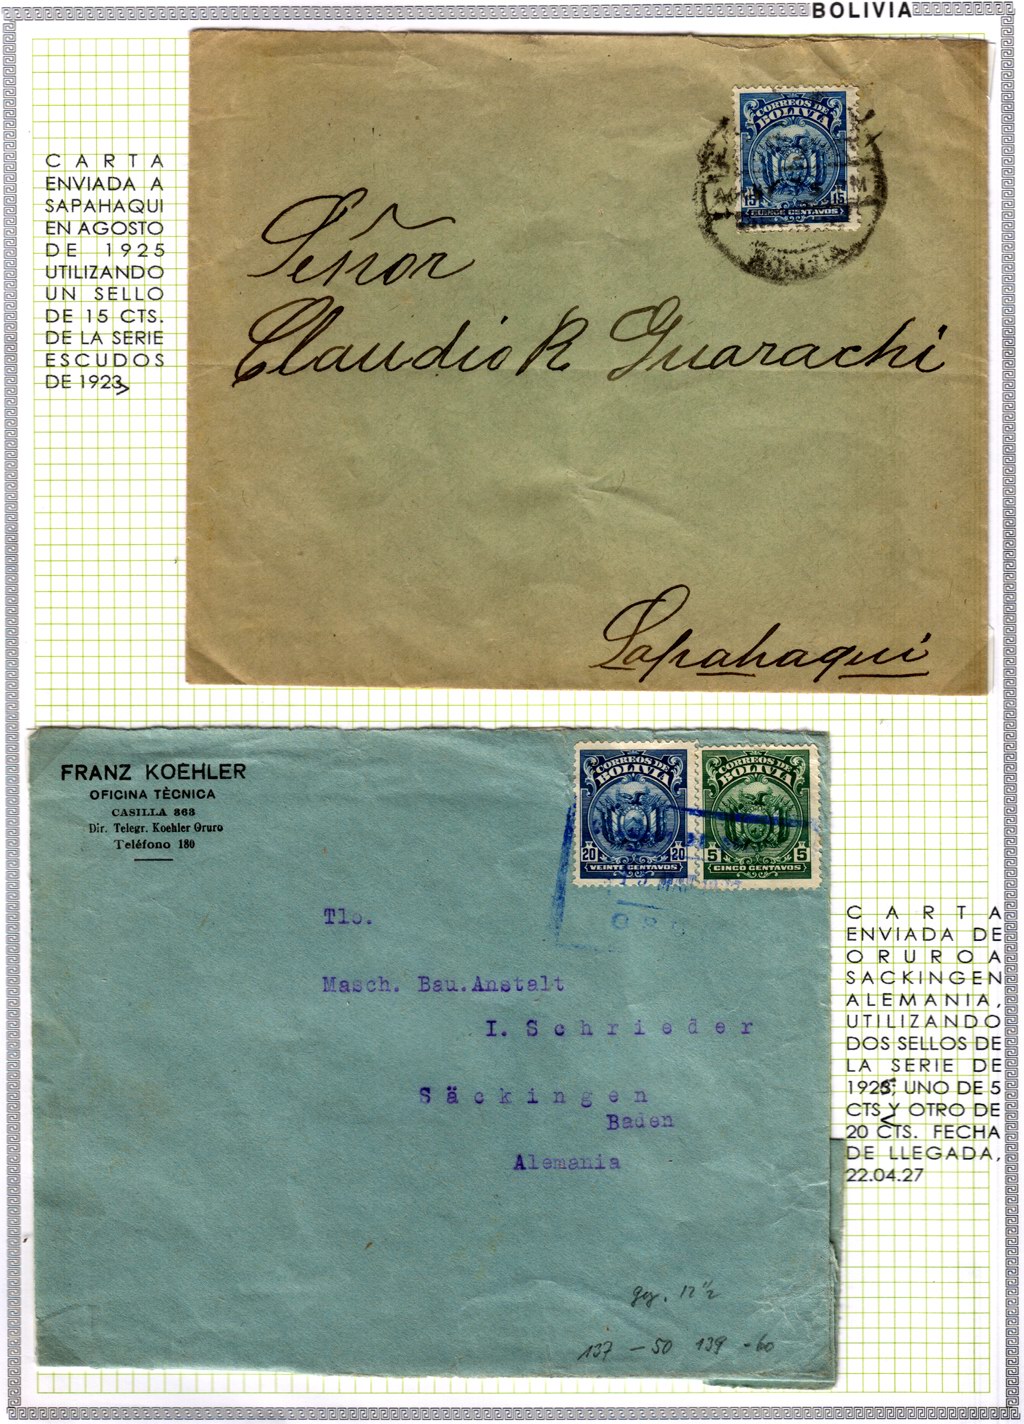 BOLIVIA
CARTA
ENVIADA A
SAPAHAQUI
EN AGOSTO
DE 1925
UTILIZANDO
UN SELLO
DE 15 CTS.
DE LA SERIE
ESCUDOS
DE 1923
CORREOS DE
BOLIVIA
15 15
QUINCE CENTAVOS
Señor
Claudio R Guarachi
Sapahaqui
FRANZ KOEHLER
OFICINA TÈCNICA
CASILLA 363
Dir. Telegr. Koehler Oruro
Teléfono 180
CORREOS DE
BOLIVIA
20 20
VEINTE CENTAVOS
CORREOS DE
BOLIVIA
5 5
CINCO CENTAVOS
Tlo.
Masch. Bau.Anstalt
I. Schrieder
Säckingen
Baden
Alemania
CARTA
ENVIADA DE
ORURO A
SACKINGEN
ALEMANIA,
UTILIZANDO
DOS SELLOS DE
LA SERIE DE
1923; UNO DE 5
CTS Y OTRO DE
20 CTS. FECHA
DE LLEGADA,
22.04.27
gez. 12 1/2
137 - 50 139 - 60